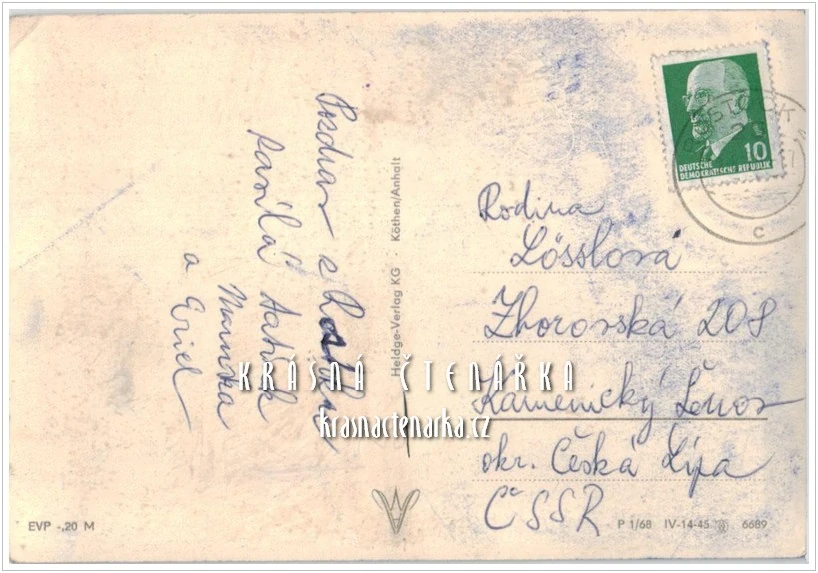 Pozdrav z
zasílá Tatínek
Maminka
a Erich
Heldge-Verlag KG · Köthen/Anhalt
DEUTSCHE
DEMOKRATISCHE REPUBLIK
10
C
Rodina
Lösslová
Zborovská 208
Kamenický Šenov
okr. Česká Lípa
ČSSR
KRÁSNÁ ČTENÁŘKA
krasnactenarka.cz
EVP -,20 M
P 1/68 IV-14-45 6689